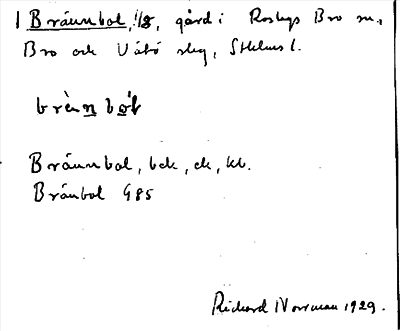 1 Brännbol, 1/8, gård i Roslags Bro sn,
Bro och Vätö skg, Sthlms l.
brènbo̱l
Brännbol, bek, ek, kb.
Bränbol G85
Richard Norrman 1929.